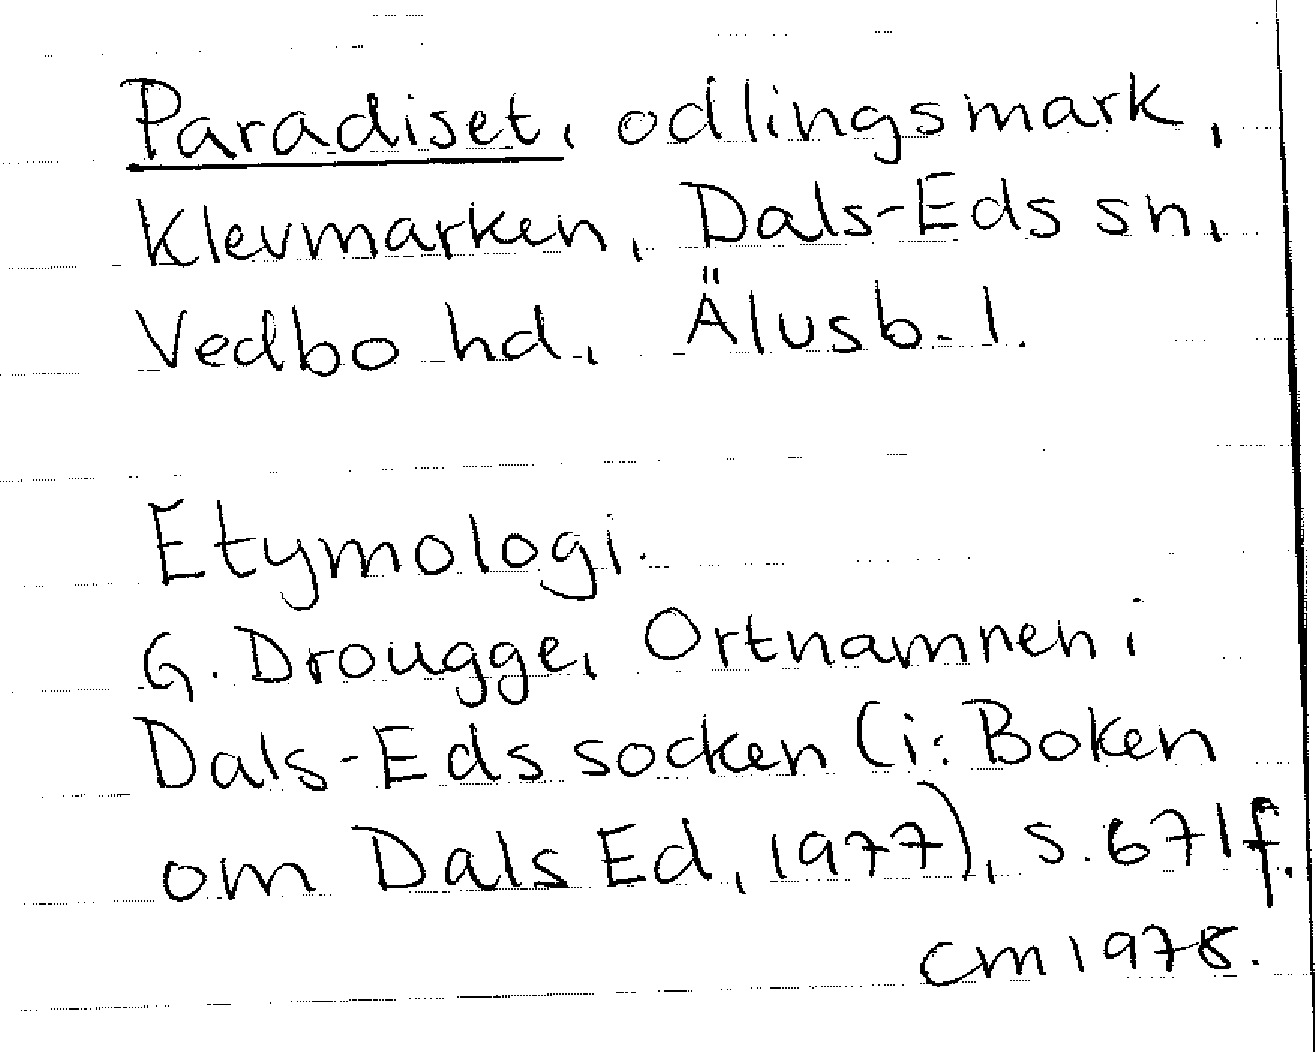 Paradiset, odlingsmark,
Klevmarken, Dals-Eds sn,
Vedbo hd, Älvsb. l.
Etymologi.
G. Drougge, Ortnamnen i
Dals-Eds socken (i: Boken
om Dals Ed, 1977), s. 671f.
CM 1978.